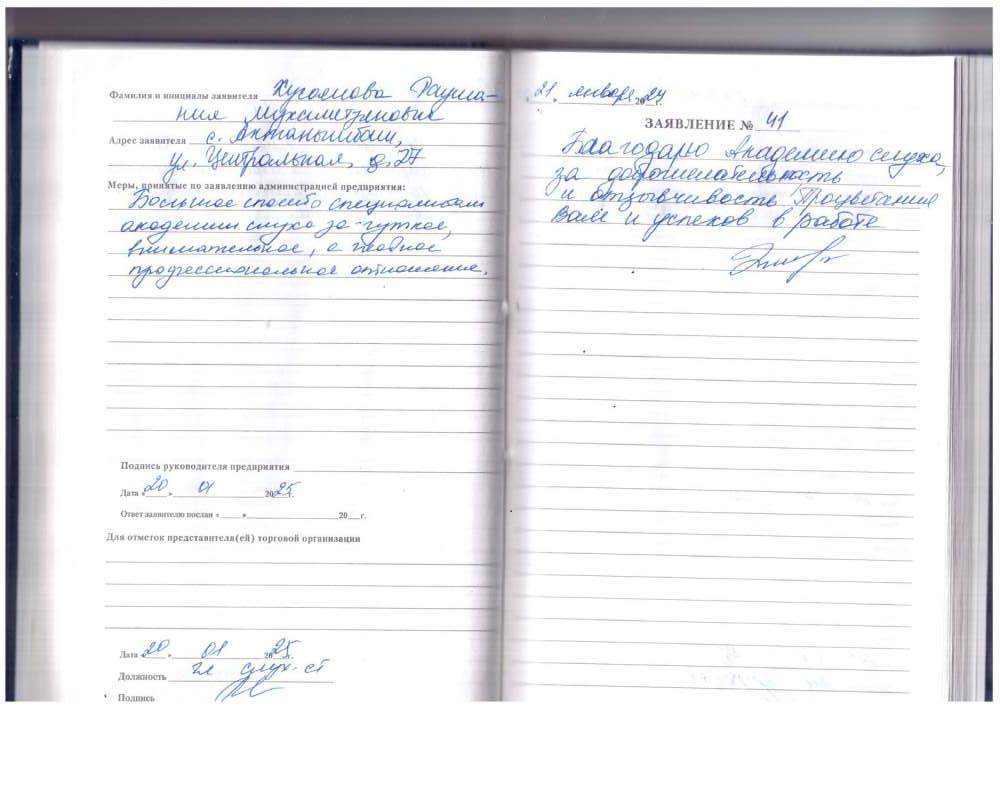 Фамилия и инициалы заявителя
Адрес заявителя с. Актанышбаш,
ул. Центральная, д. 27
Меры, принятые по заявлению администрацией предприятия:
Большое спасибо специалистам
академии слуха за чуткое,
внимательное, а главное
профессиональное отношение.
Подпись руководителя предприятия
Дата « 20 » 01 2025 г.
Ответ заявителю послан « » 20 г.
Для отметок представителя(ей) торговой организации
Дата « 20 » 01 2025 г.
Должность
Подпись
21 января 2024
ЗАЯВЛЕНИЕ № 41
Благодарю Академию слуха,
за доброжелательность
и отзывчивость. Процветания
Вам и успехов в работе